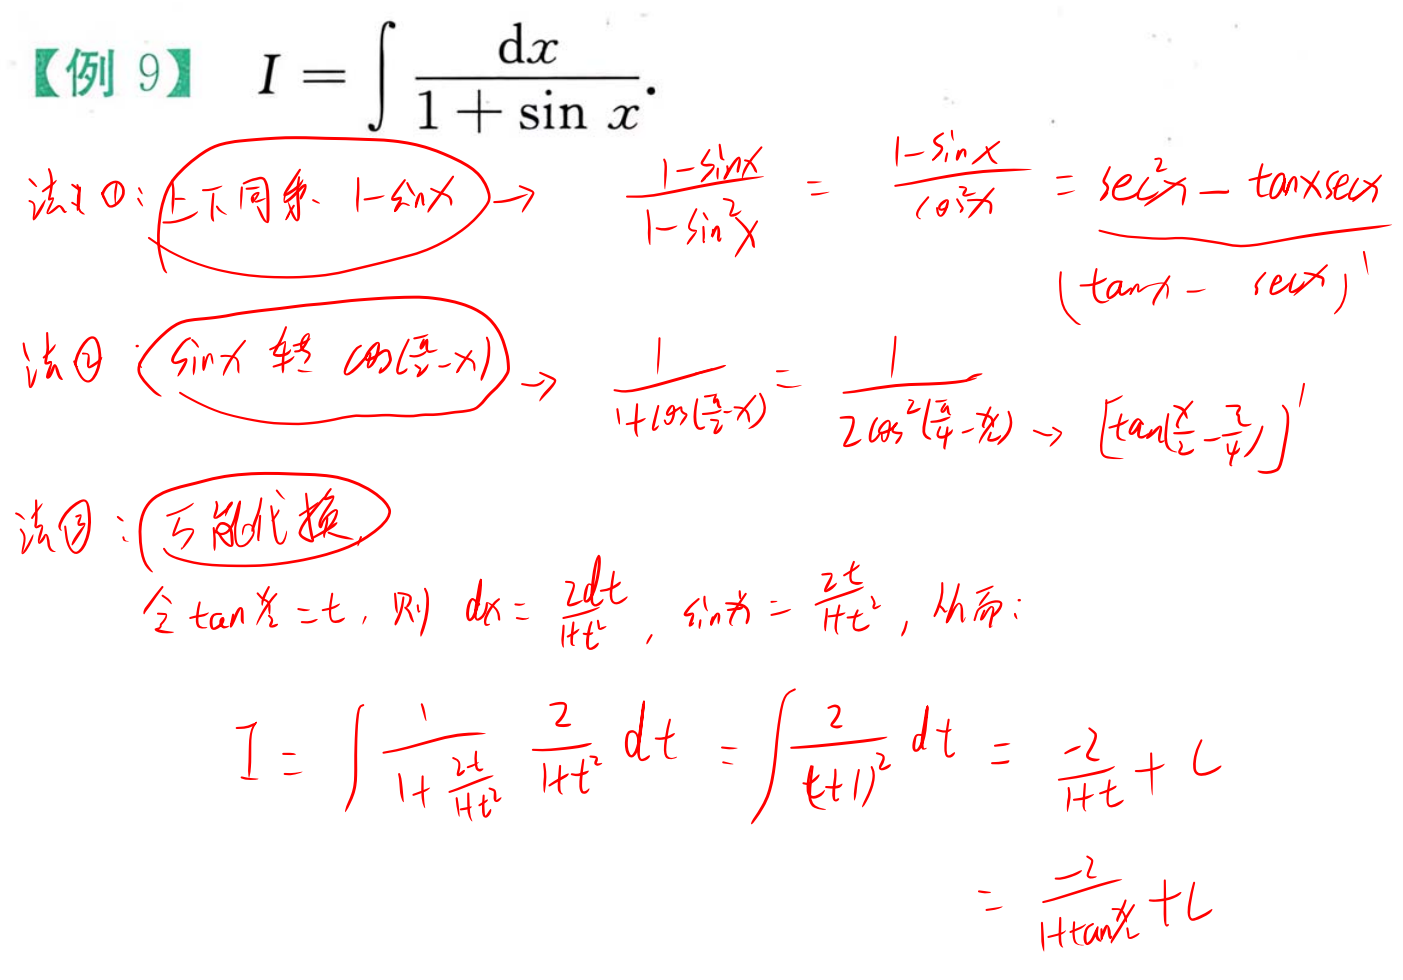 【例 9】 I = ∫ dx/(1 + sin x).
法①: 上下同乘 1-sinx → (1-sinx)/(1-sin²x) = (1-sinx)/(cos²x) = sec²x - tanxsecx
(tanx - secx)'
法②: sinx 转 cos(π/2-x) → 1/(1+cos(π/2-x)) = 1/(2cos²(π/4-x/2)) → [tan(x/2-π/4)]'
法③: 万能代换
令 tan x/2 = t, 则 dx = 2dt/(1+t²), sinx = 2t/(1+t²), 从而:
I = ∫ 1/(1+2t/(1+t²)) 2/(1+t²) dt = ∫ 2/(t+1)² dt = -2/(1+t) + C
= -2/(1+tan x/2) + C